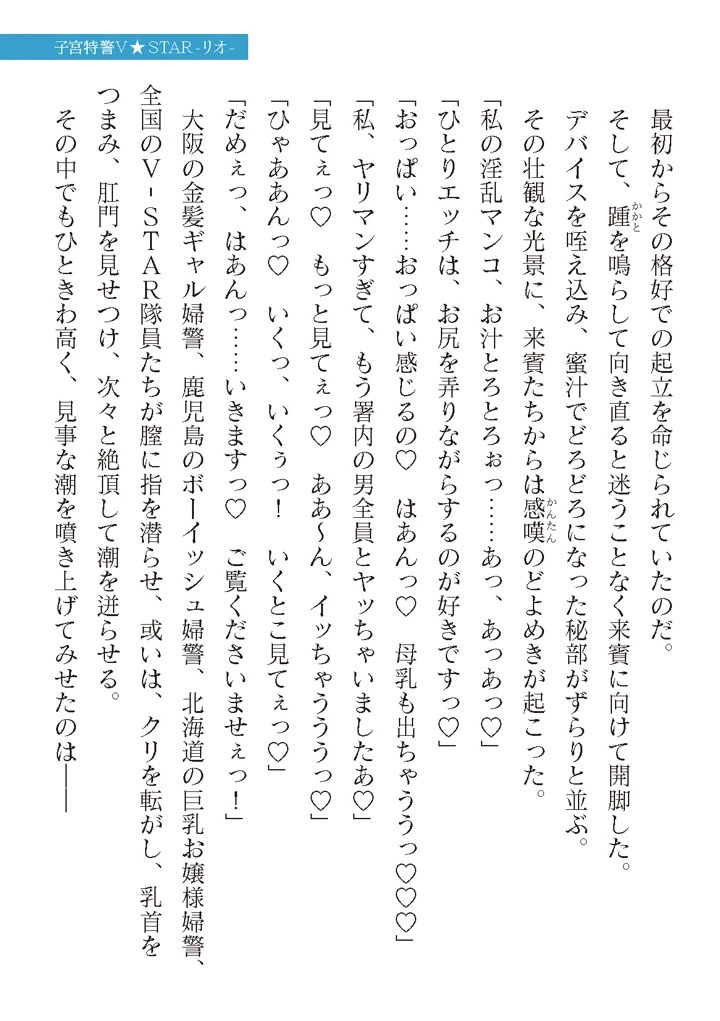 子宮特警V★STAR-リオ-
最初からその格好での起立を命じられていたのだ。
そして、踵を鳴らして向き直ると迷うことなく来賓に向けて開脚した。
デバイスを咥え込み、蜜汁でどろどろになった秘部がずらりと並ぶ。
その壮観な光景に、来賓たちからは感嘆のどよめきが起こった。
「私の淫乱マンコ、お汁とろとろぉっ……あっ、あっあっ♡」
「ひとりエッチは、お尻を弄りながらするのが好きですっ♡」
「おっぱい……おっぱい感じるの♡　はあんっ♡　母乳も出ちゃううっ♡♡♡」
「私、ヤリマンすぎて、もう署内の男全員とヤッちゃいましたあ♡」
「見てぇっ♡　もっと見てぇっ♡　ああ～ん、イッちゃうううっ♡」
「ひゃああんっ♡　いくっ、いくぅっ！　いくとこ見てぇっ♡」
「だめぇっ、はあんっ……いきますっ♡　ご覧くださいませぇっ！」
大阪の金髪ギャル婦警、鹿児島のボーイッシュ婦警、北海道の巨乳お嬢様婦警、
全国のV-STAR隊員たちが膣に指を潜らせ、或いは、クリを転がし、乳首を
つまみ、肛門を見せつけ、次々と絶頂して潮を迸らせる。
その中でもひときわ高く、見事な潮を噴き上げてみせたのは――